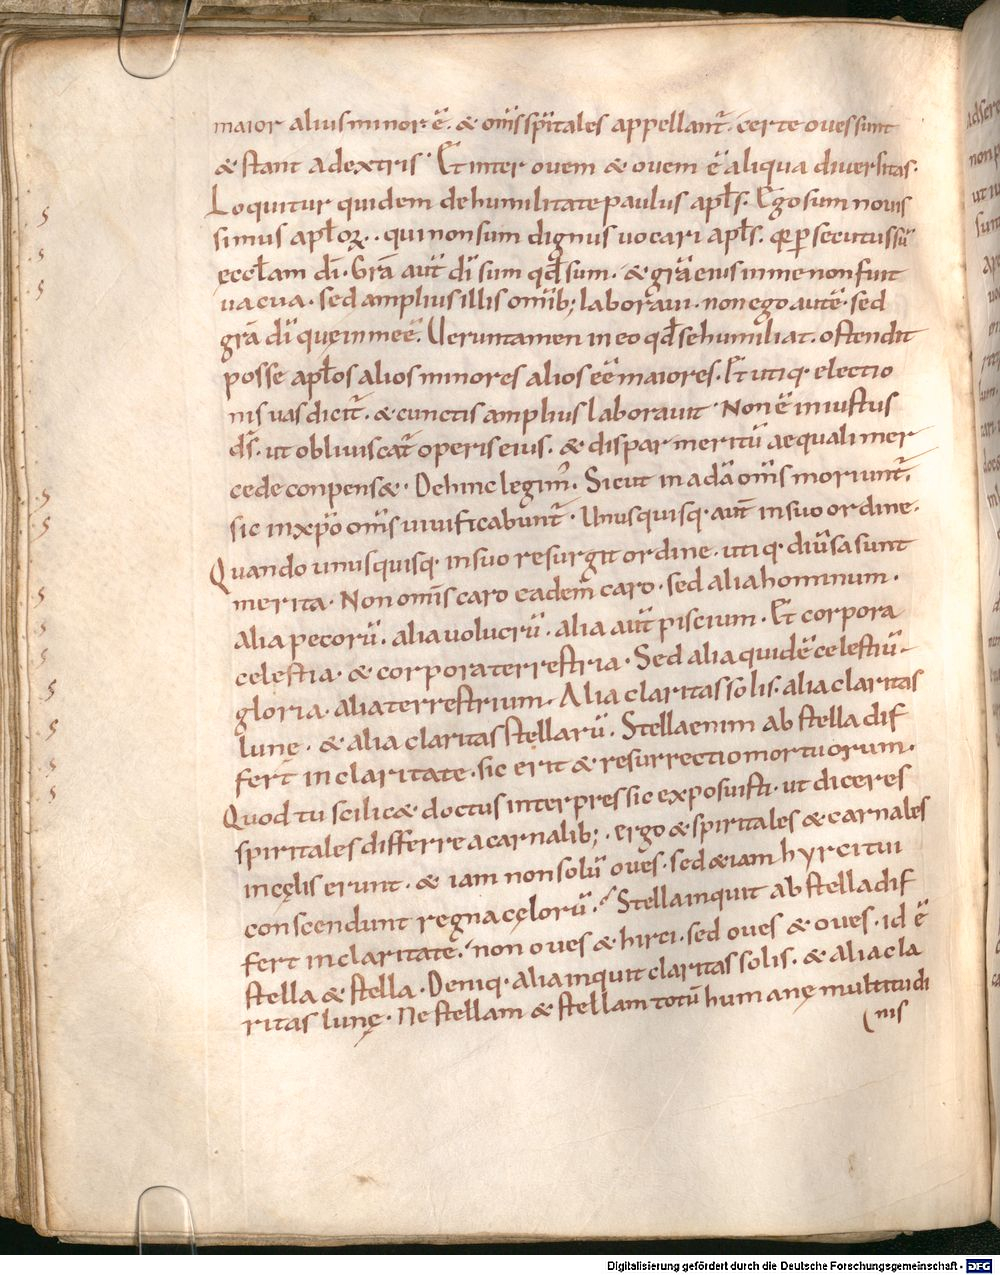 maior alius minor ē. & om̄s sp̄itales appellant̄. certe oues sunt
& stant ad extris. Et inter ouem & ouem ē aliqua diuersitas.
Loquitur quidem de humilitate paulus apl̄s. Ego sum nouis
simus apl̄oꝝ. qui non sum dignus uocari apl̄s. qꝑsecutus sū
ęccl̄am dī. Grā aut̄ dī sum qd̄ sum. & grā eius in me non fuit
uacua. sed amplius illis om̄ib; laboraui. non ego autē. sed
grā dī quę in me ē. Ueruntamen in eo qd̄ se humiliat. ostendit
posse apl̄os alios minores alios eē maiores. Et utiq. electio
nis uas dicit̄. & cunctis amplius laborauit. Non ē iniustus
ds̄. ut obliuiscat̄ operis eius. & dispar meritū aequali mer
cede conpens&. Dehinc legim̄. Sicut in adā om̄s moriunt̄.
sic in xp̄o om̄s uiuificabunt̄. Unusquisq. aut̄ in suo ordine.
Quando unusquisq. in suo resurgit ordine. utiq. diūsa sunt
merita. Non om̄is caro eadem caro. sed alia hominum.
alia pecorū. alia uolucrū. alia aut̄ piscium. Et corpora
celestia. & corpora terrestria. Sed alia quidē celestiū
gloria. alia terrestrium. Alia claritas solis. alia claritas
lunę. & alia claritas stellarū. Stella enim ab stella dif
fert in claritate. sic erit & resurrectio mortuorum.
Quod tu scilic& doctus interpres sic exposuisti. ut diceres
spiritales differre a carnalib;. ergo & spiritales & carnales
in cęlis erunt. & iam non solū oues. sed &iam hyrci tui
conscendunt regna cęlorū. Stella inquit ab stella dif
fert in claritate. non oues & hirci. sed oues & oues. id ē
stella & stella. Deniq. alia inquit claritas solis. & alia cla
ritas lunę. Ne stellam & stellam totū humanę multitudi
nis
Digitalisierung gefördert durch die Deutsche Forschungsgemeinschaft - DFG